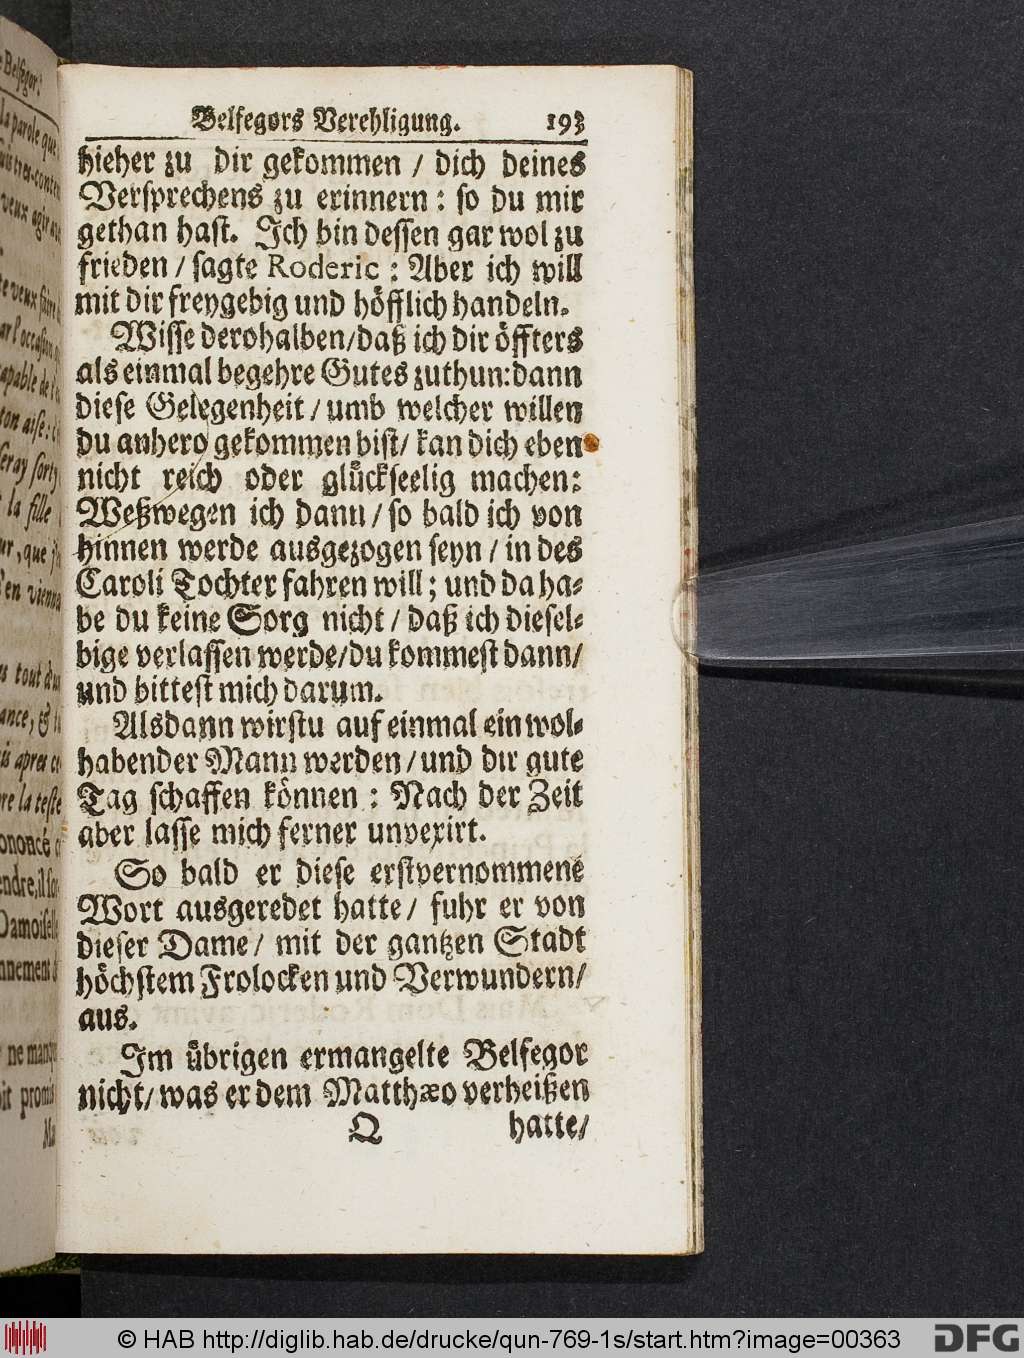 Belfegors Verehligung. 193
hieher zu dir gekommen / dich deines
Versprechens zu erinnern : so du mir
gethan hast. Ich bin dessen gar wol zu
frieden / sagte Roderic : Aber ich will
mit dir freygebig und höfflich handeln.
Wisse derohalben/daß ich dir öffters
als einmal begehre Gutes zuthun:dann
diese Gelegenheit / umb welcher willen
du anhero gekommen bist/ kan dich eben
nicht reich oder glückseelig machen:
Weßwegen ich dann / so bald ich von
hinnen werde ausgezogen seyn / in des
Caroli Tochter fahren will ; und da ha-
be du keine Sorg nicht / daß ich diesel-
bige verlassen werde/du kommest dann/
und bittest mich darum.
Alsdann wirstu auf einmal ein wol-
habender Mann werden / und dir gute
Tag schaffen können : Nach der Zeit
aber lasse mich ferner unvexirt.
So bald er diese erstvernommene
Wort ausgeredet hatte/ fuhr er von
dieser Dame/ mit der gantzen Stadt
höchstem Frolocken und Verwundern/
aus.
Im übrigen ermangelte Belfegor
nicht/ was er dem Matthæo verheißen
Q hatte/
e Belfegor.
la parole que
veux agir
l'occasion
capable de
ton aise :
seray sorty
la fille
que
en vienne
tout d'un
ance, &
apres
re la teste
ononcé
endre, il
Damoiselle
nnement
ne manqu
oit promis
Ma
© HAB http://diglib.hab.de/drucke/qun-769-1s/start.htm?image=00363
DFG